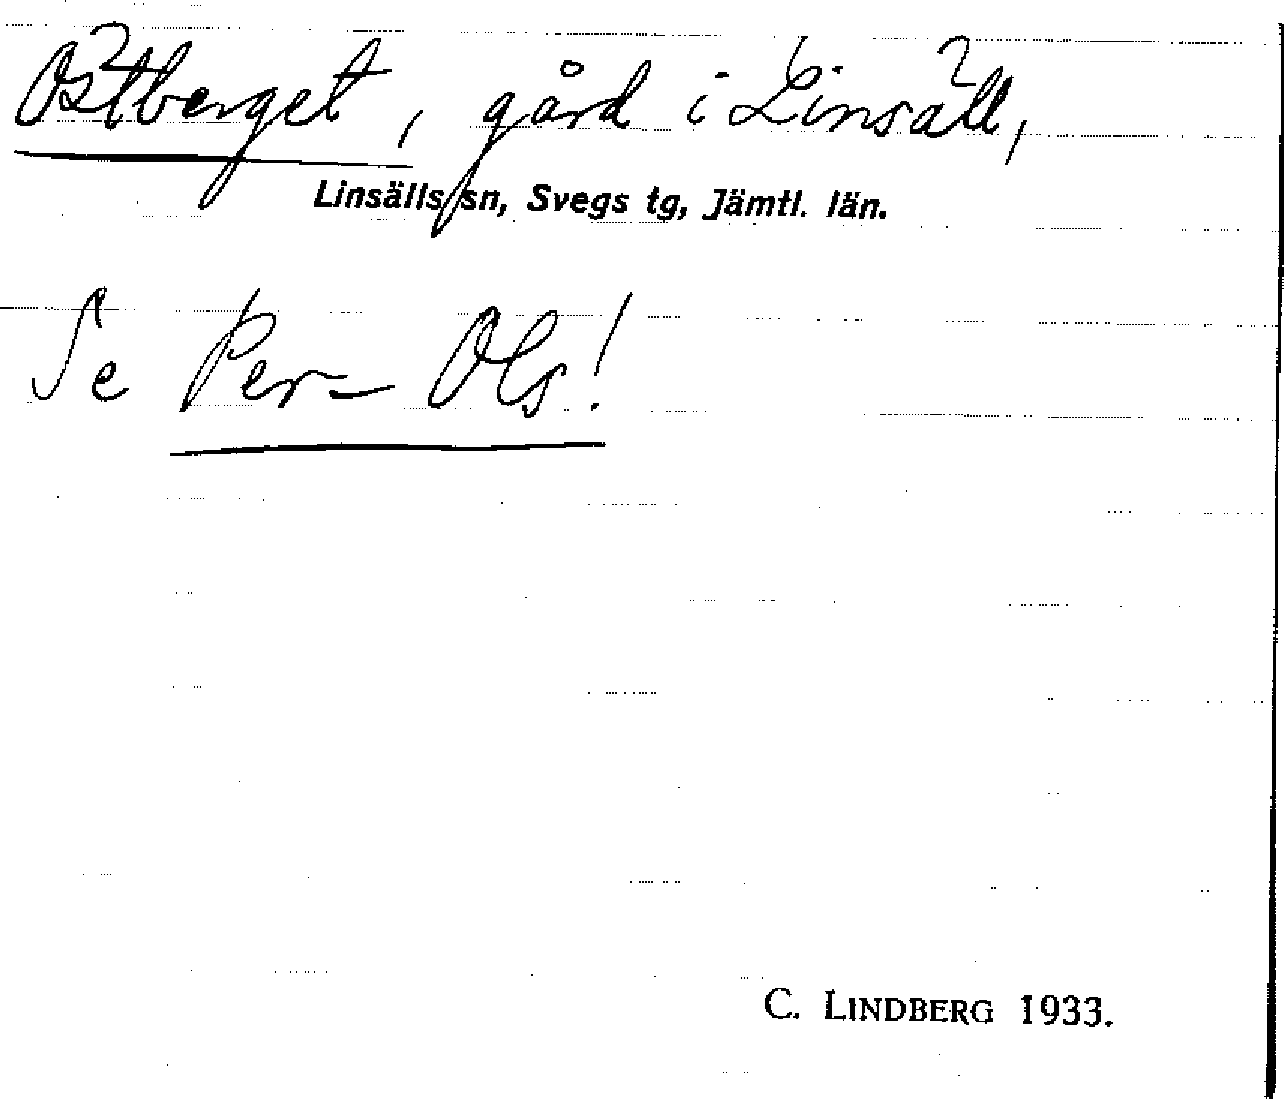 Östberget, gård i Linsäll,
Linsälls sn, Svegs tg, Jämtl. län.
Se Per-Ols!
C. LINDBERG 1933.